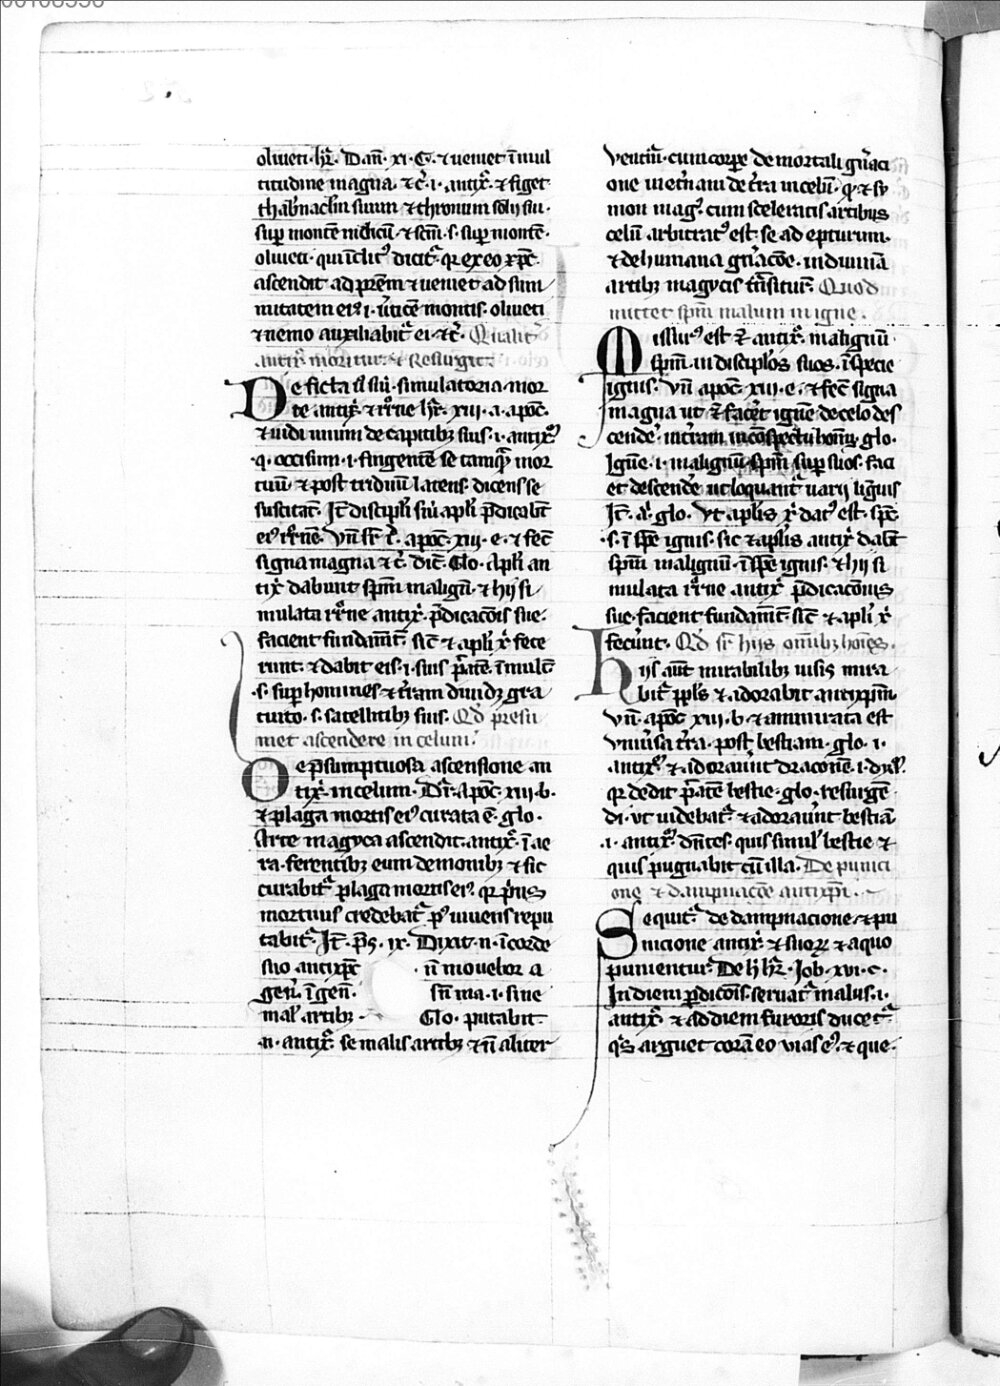 oliueti. hr̄. Dan̄. xi. G. ⁊ ueniet ī mul
titudine magna. ⁊c̄. i. antix̄. ⁊ figet
thab̄nac̄lm suum ⁊ thronum solij sui.
sup̄ montē
oliueti. qui īclit⁹ dicit̄. qꝛ ex eo xp̄c
ascendit ad p̄rem ⁊ ueniet ad sum
mitatem ei⁹. i. ūticē montis. oliueti
⁊ nemo auxiliabit̄ ei. ⁊c̄. Qualit̄
antix̄ morit̄ur. ⁊ Resurgit.
De ficta simulatoria mor
te antix̄. ⁊ hr̄. xiii. a. apoc̄.
⁊ uidi unum de capitibꝫ suis. i. antix̄
q. occisum. i. fingentē se tamq̄ mor
tuū ⁊ post triduū latens. dicens se
suscitat̄. It̄ discipl̄i sui apl̄i p̄dicabūt
ei⁹ Vn̄ apoc̄. xiii. e. ⁊ fec̄
signa magna ⁊c̄. dic̄. Glo. Apl̄i an
tix̄ dabunt sp̄m malignū. ⁊ hij si
mulata antix̄. p̄dicacōis sue.
facient fundam̄t. sic̄ ⁊ apl̄i x̄ fece
runt. ⁊ dabit eis. i. suis p̄atē. ī mult̄
.s. sup̄ homines ⁊ t̄ram diuidꝫ gra
tuito. s. satellitibꝫ suis. Qd̄ presu
met ascendere in celum.
De p̄sumptuosa ascensione an
tix̄. in celum. Dr̄. apoc̄. xiii. b.
⁊ plaga mortis ei⁹ curata ē. glo.
Arte magyca ascendit. antix̄. ī ae
ra. ferentibꝫ eum demonibꝫ ⁊ sic
curabit̄ plaga mortis ei⁹. qꝛ p̄mis
mortuus credebat̄ p⁹ uiuens repu
tabit̄. It̄. ps̄. ix. Dixit. n. ī corde
suo antixp̄c n̄ mouebor a
gen̄. ī gen̄. sn̄ ma. i. sine
mal̄ artibꝫ. Glo. putabit.
n. antix̄. se malis artibꝫ ⁊ n̄ aliter
ventur̄. cum corpe de mortali gn̄aci
one in et̄nam de t̄ra in celum. qꝛ ⁊ sy
mon mag⁹ cum sceleratis artibus
celū arbitrat⁹ est. se ad epturum.
⁊ de humana gn̄acōe. in diuinā
artibꝫ magycis t̄nsitur̄. Quod
mittet sp̄m malum in igne.
Missur⁹ est ⁊ antix̄. malignū
sp̄m. in discipl̄os suos. ī specie
ignis. Vn̄ apoc̄. xiii. e. ⁊ fec̄ signa
magna ut ⁊ facet ignē de celo des
cende᷒. in t̄ram in cōspectu hom̄. glo.
Ignē. i. malignū sp̄m sup̄ suos. faci
et descende᷒ ut loquant̄ uarij linguis
It̄. a᷒. glo. Vt apl̄is x̄ dat⁹ est. sp̄c
.s. ī sp̄e ignis. sic ⁊ apl̄is antix̄ dabit̄
sp̄m malignū. ī sp̄e ignis. ⁊ hij si
mulata antix̄ p̄dicacōnis
sue. facient fundam̄t. sic̄ ⁊ apl̄i x̄
fecūnt. Qd̄ sr̄ hijs omībꝫ hoīes.
Hijs aut̄ mirabilibꝫ uisis mira
bit̄ ppl̄s ⁊ adorabit antixp̄m
Vn̄. apoc̄ xiii. b. ⁊ ammirata est
vniūsa t̄ra. post bestiam. glo. i.
antix̄ ⁊ adorauūt draconē. i. dyl̄.
qꝛ dedit p̄atē bestie. glo. resurgē
di. ut uidebat̄ ⁊ adoraūnt bestiā
.i. antix̄ dn̄tes. quis simil̄ bestie ⁊
quis pugnabit cū illa. De punici
one ⁊ dampnacōe antixp̄i.
Sequit̄ de dampnacione. ⁊ pu
nicione antix̄. ⁊ suoꝝ ⁊ a quo
punientur. De h̄ hr̄. Job. xxi. c.
In diem p̄dicōis. seruat̄ malus. i.
antix̄. ⁊ ad diem furoris ducet̄
qⁱs arguet corā eo uias ei⁹. ⁊ que.